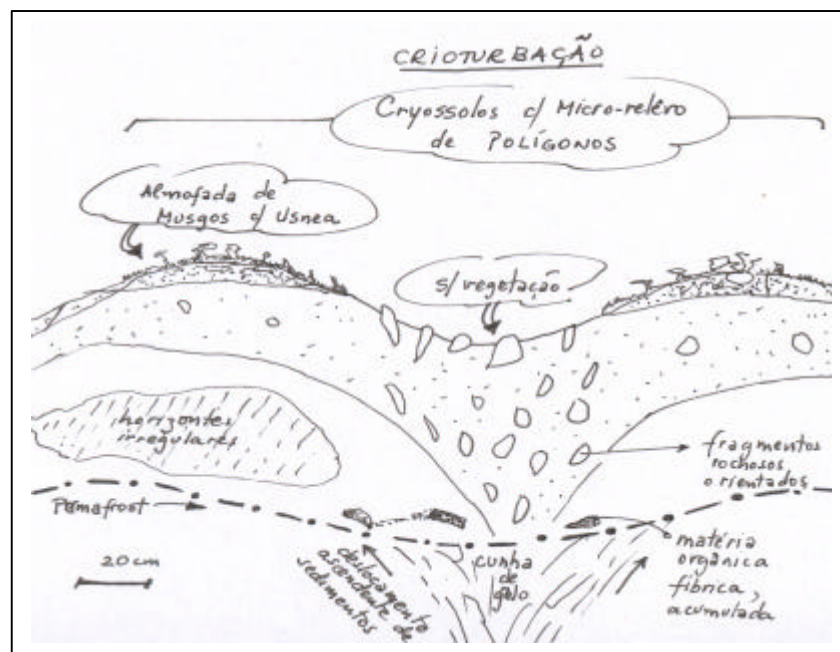 CRIOTURBAÇÃO
Cryossolos c/ Micro-relêvo
de POLÍGONOS
Almofada de
Musgos c/ Usnea
s/ vegetação
horizontes
irregulares
fragmentos
rochosos
orientados
Permafrost
20 cm
deslocamento
ascendente de
sedimentos
cunha
de
gelo
matéria
orgânica
fíbrica,
acumulada